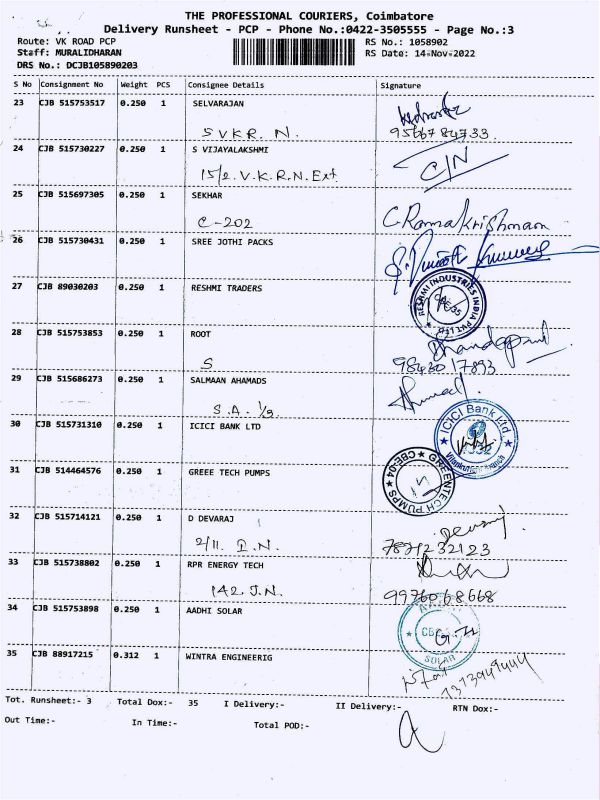 THE PROFESSIONAL COURIERS, Coimbatore
Delivery Runsheet - PCP - Phone No.:0422-3505555 - Page No.:3
Route: VK ROAD PCP RS No.: 1058902
Staff: MURALIDHARAN RS Date: 14-Nov-2022
DRS No.: DCJB105890203
S No Consignment No Weight PCS Consignee Details Signature
23 CJB 515753517 0.250 1 SELVARAJAN
S V K R. N. 9566784733.
24 CJB 515730227 0.250 1 S VIJAYALAKSHMI C/N
15/2. V. K. R. N. Ext
25 CJB 515697305 0.250 1 SEKHAR
C-202 C. Ramakrishnan
26 CJB 515730431 0.250 1 SREE JOTHI PACKS
27 CJB 89030203 0.250 1 RESHMI TRADERS
RESHMI INDUSTRIES INDIA PVT LTD
28 CJB 515753853 0.250 1 ROOT
S 98430 17893
29 CJB 515686273 0.250 1 SALMAAN AHAMADS
S.A. 1/9
30 CJB 515731310 0.250 1 ICICI BANK LTD
ICICI Bank Ltd.
31 CJB 514464576 0.250 1 GREEE TECH PUMPS
GREENTECH PUMPS CBE-04
32 CJB 515714121 0.250 1 D DEVARAJ
2/11. I. N. 7871232123
33 CJB 515738802 0.250 1 RPR ENERGY TECH
142 J.N. 9976068668
34 CJB 515753898 0.250 1 AADHI SOLAR
SOLAR
35 CJB 88917215 0.312 1 WINTRA ENGINEERIG
Tot. Runsheet:- 3 Total Dox:- 35 I Delivery:- II Delivery:- RTN Dox:-
Out Time:- In Time:- Total POD:-